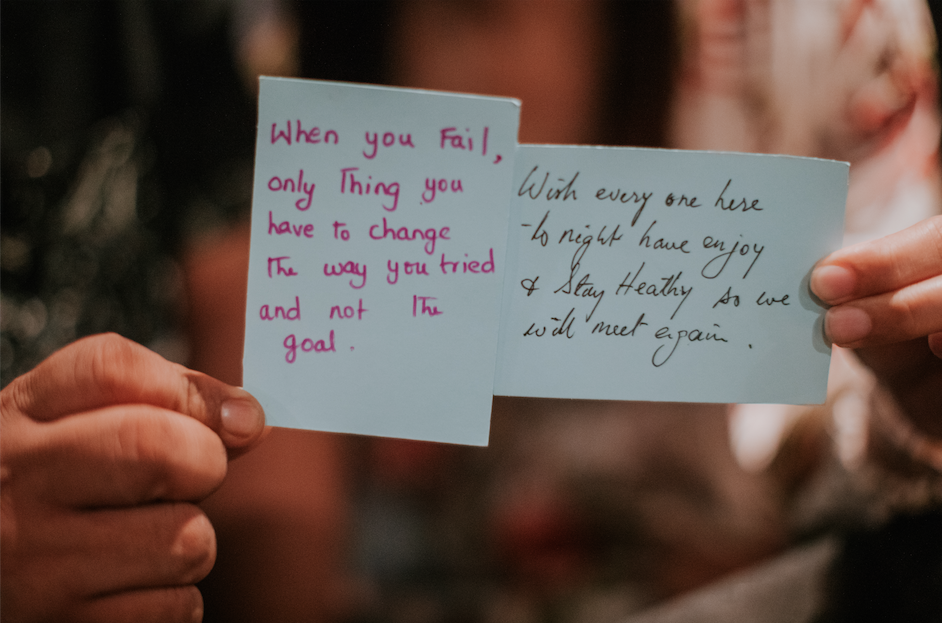 When you Fail,
only Thing you
have to change
The way you tried
and not The
goal.
Wish every one here
to night have enjoy
& Stay Heathy so we
will meet again.